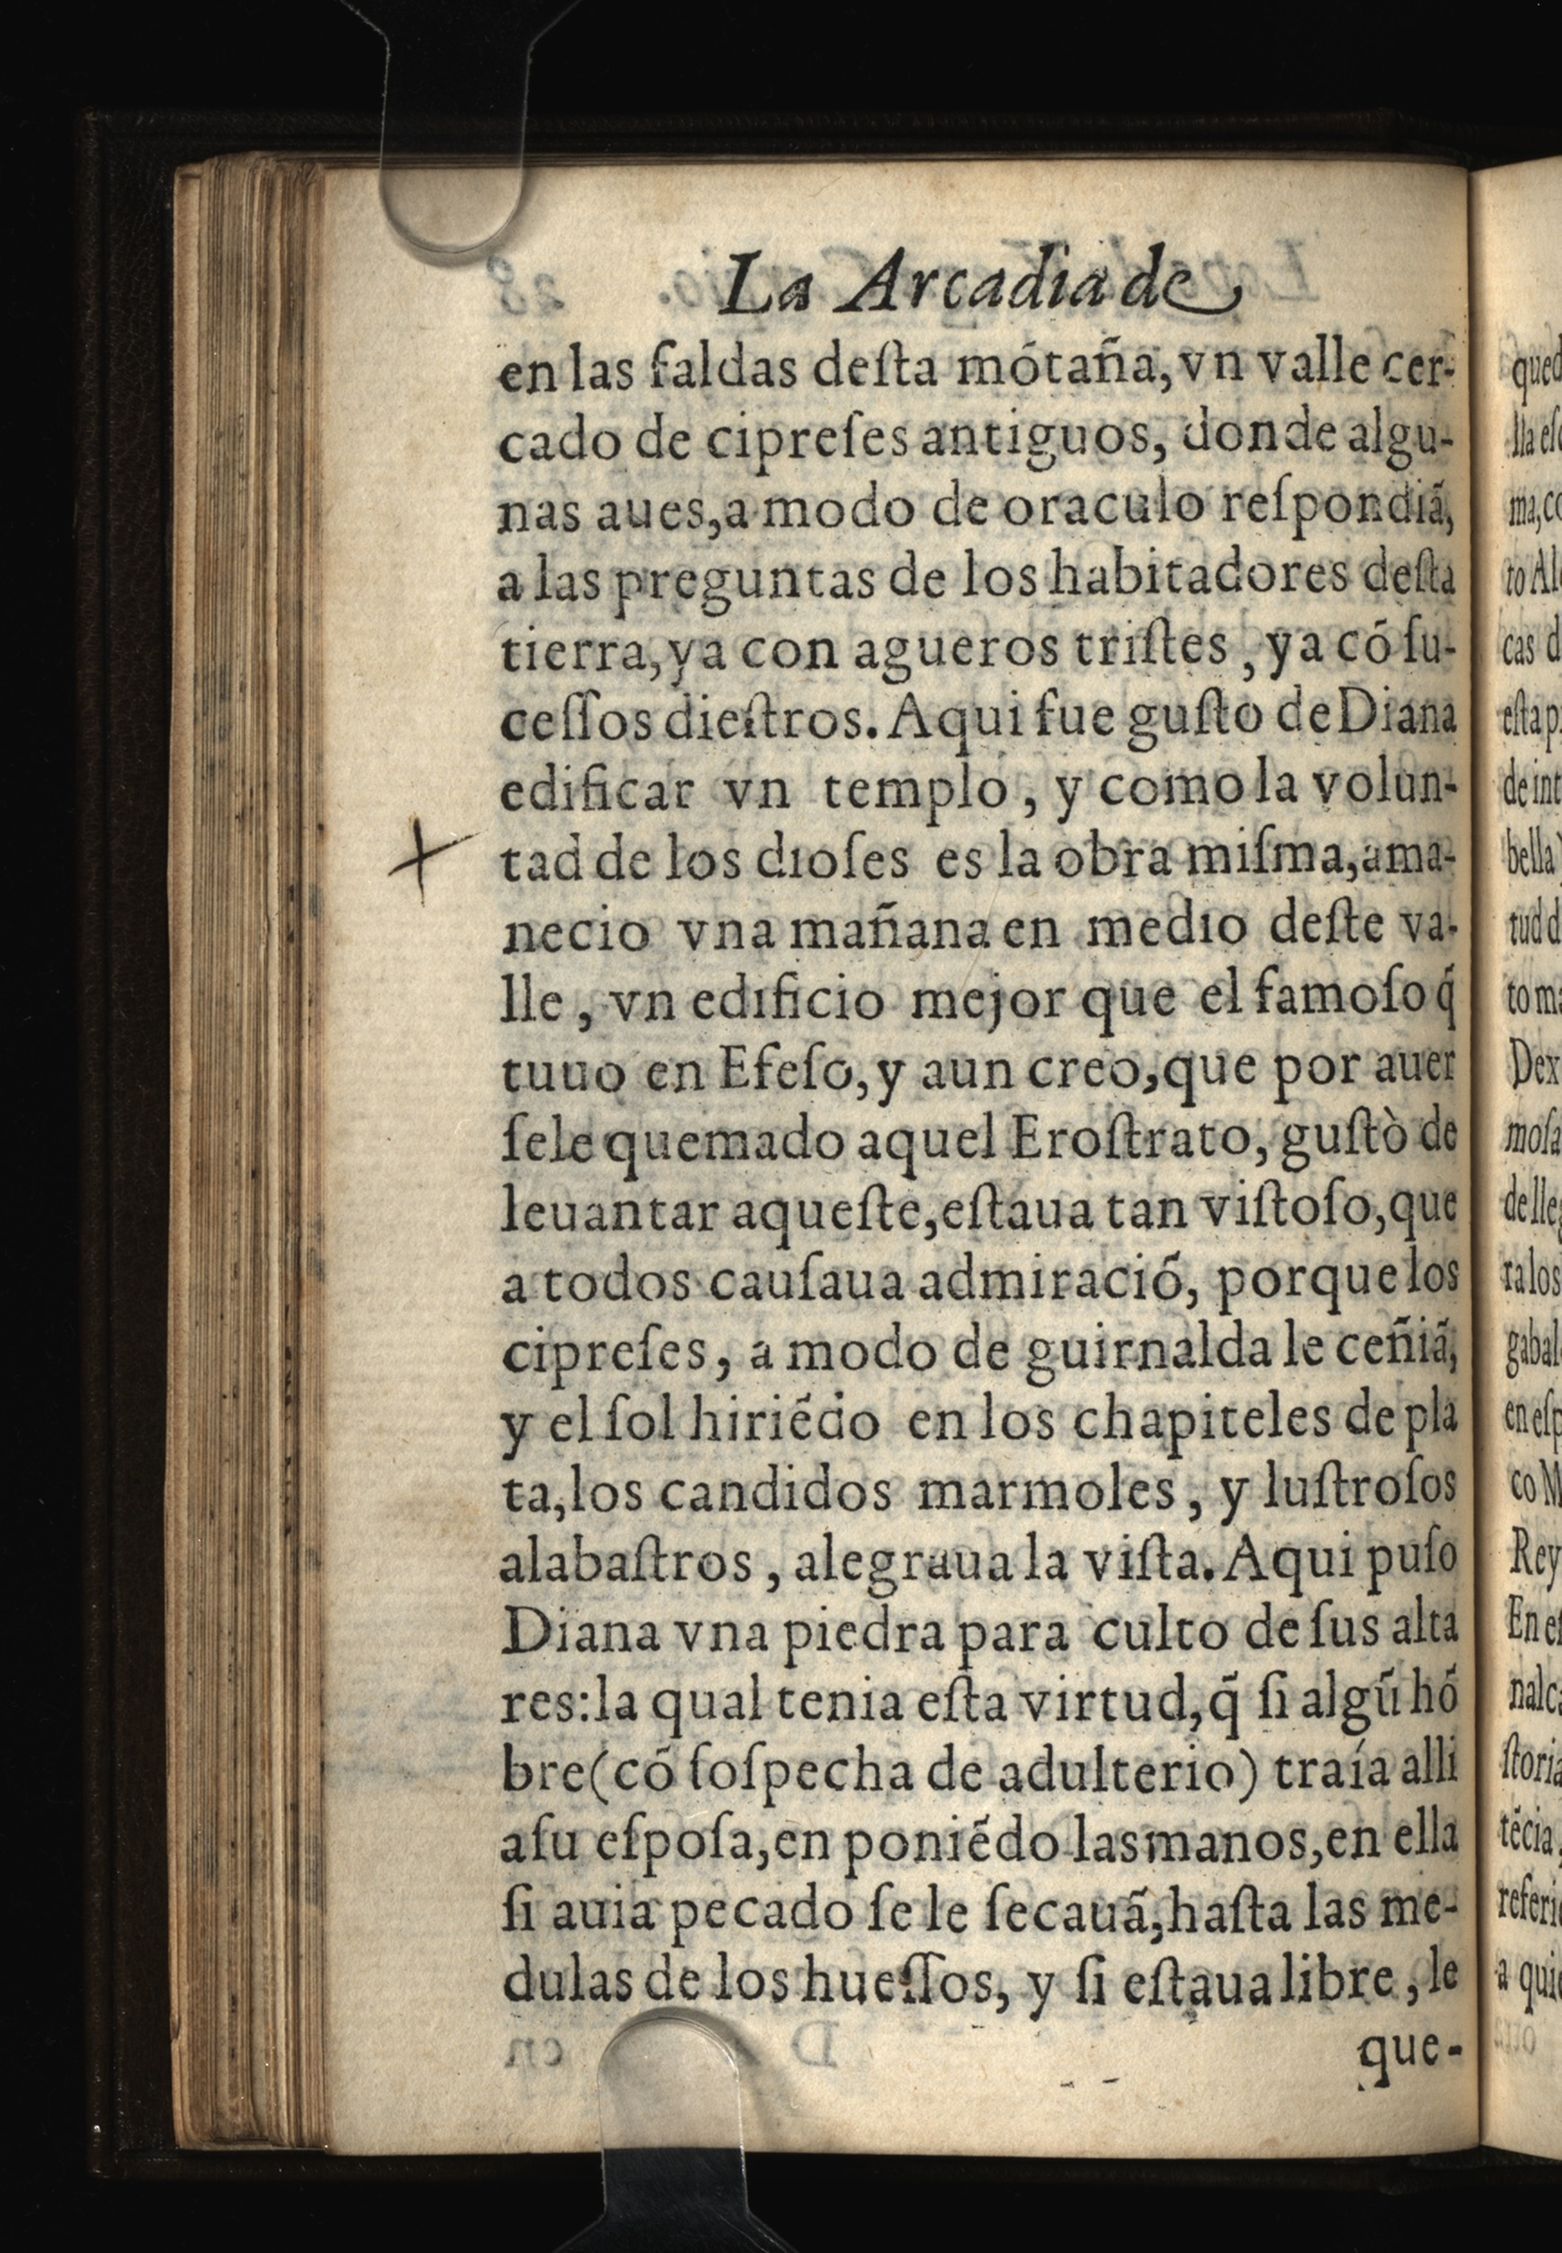 La Arcadia de
en las faldas deſta mótaña, vn valle cer-
cado de cipreſes antiguos, donde algu-
nas aues, a modo de oraculo reſpondiã,
a las preguntas de los habitadores deſta
tierra, ya con agueros triſtes, ya có ſu-
ceſſos dieſtros. Aqui fue guſto de Diana
edificar vn templo, y como la volun-
tad de los dioſes es la obra miſma, ama-
necio vna mañana en medio deſte va-
lle, vn edificio mejor que el famoſo q̃
tuuo en Efeſo, y aun creo, que por auer
ſele quemado aquel Eroſtrato, guſtò de
leuantar aqueſte, eſtaua tan viſtoſo, que
a todos cauſaua admiració, porque los
cipreſes, a modo de guirnalda le ceñiã,
y el ſol hiriẽdo en los chapiteles de pla
ta, los candidos marmoles, y luſtroſos
alabaſtros, alegraua la viſta. Aqui puſo
Diana vna piedra para culto de ſus alta
res: la qual tenia eſta virtud, q̃ ſi algũ hõ
bre (cõ ſoſpecha de adulterio) traía alli
a ſu eſpoſa, en poniẽdo las manos, en ella
ſi auia pecado ſe le ſecauã, haſta las me-
dulas de los hueſſos, y ſi eſtaua libre, le
que-